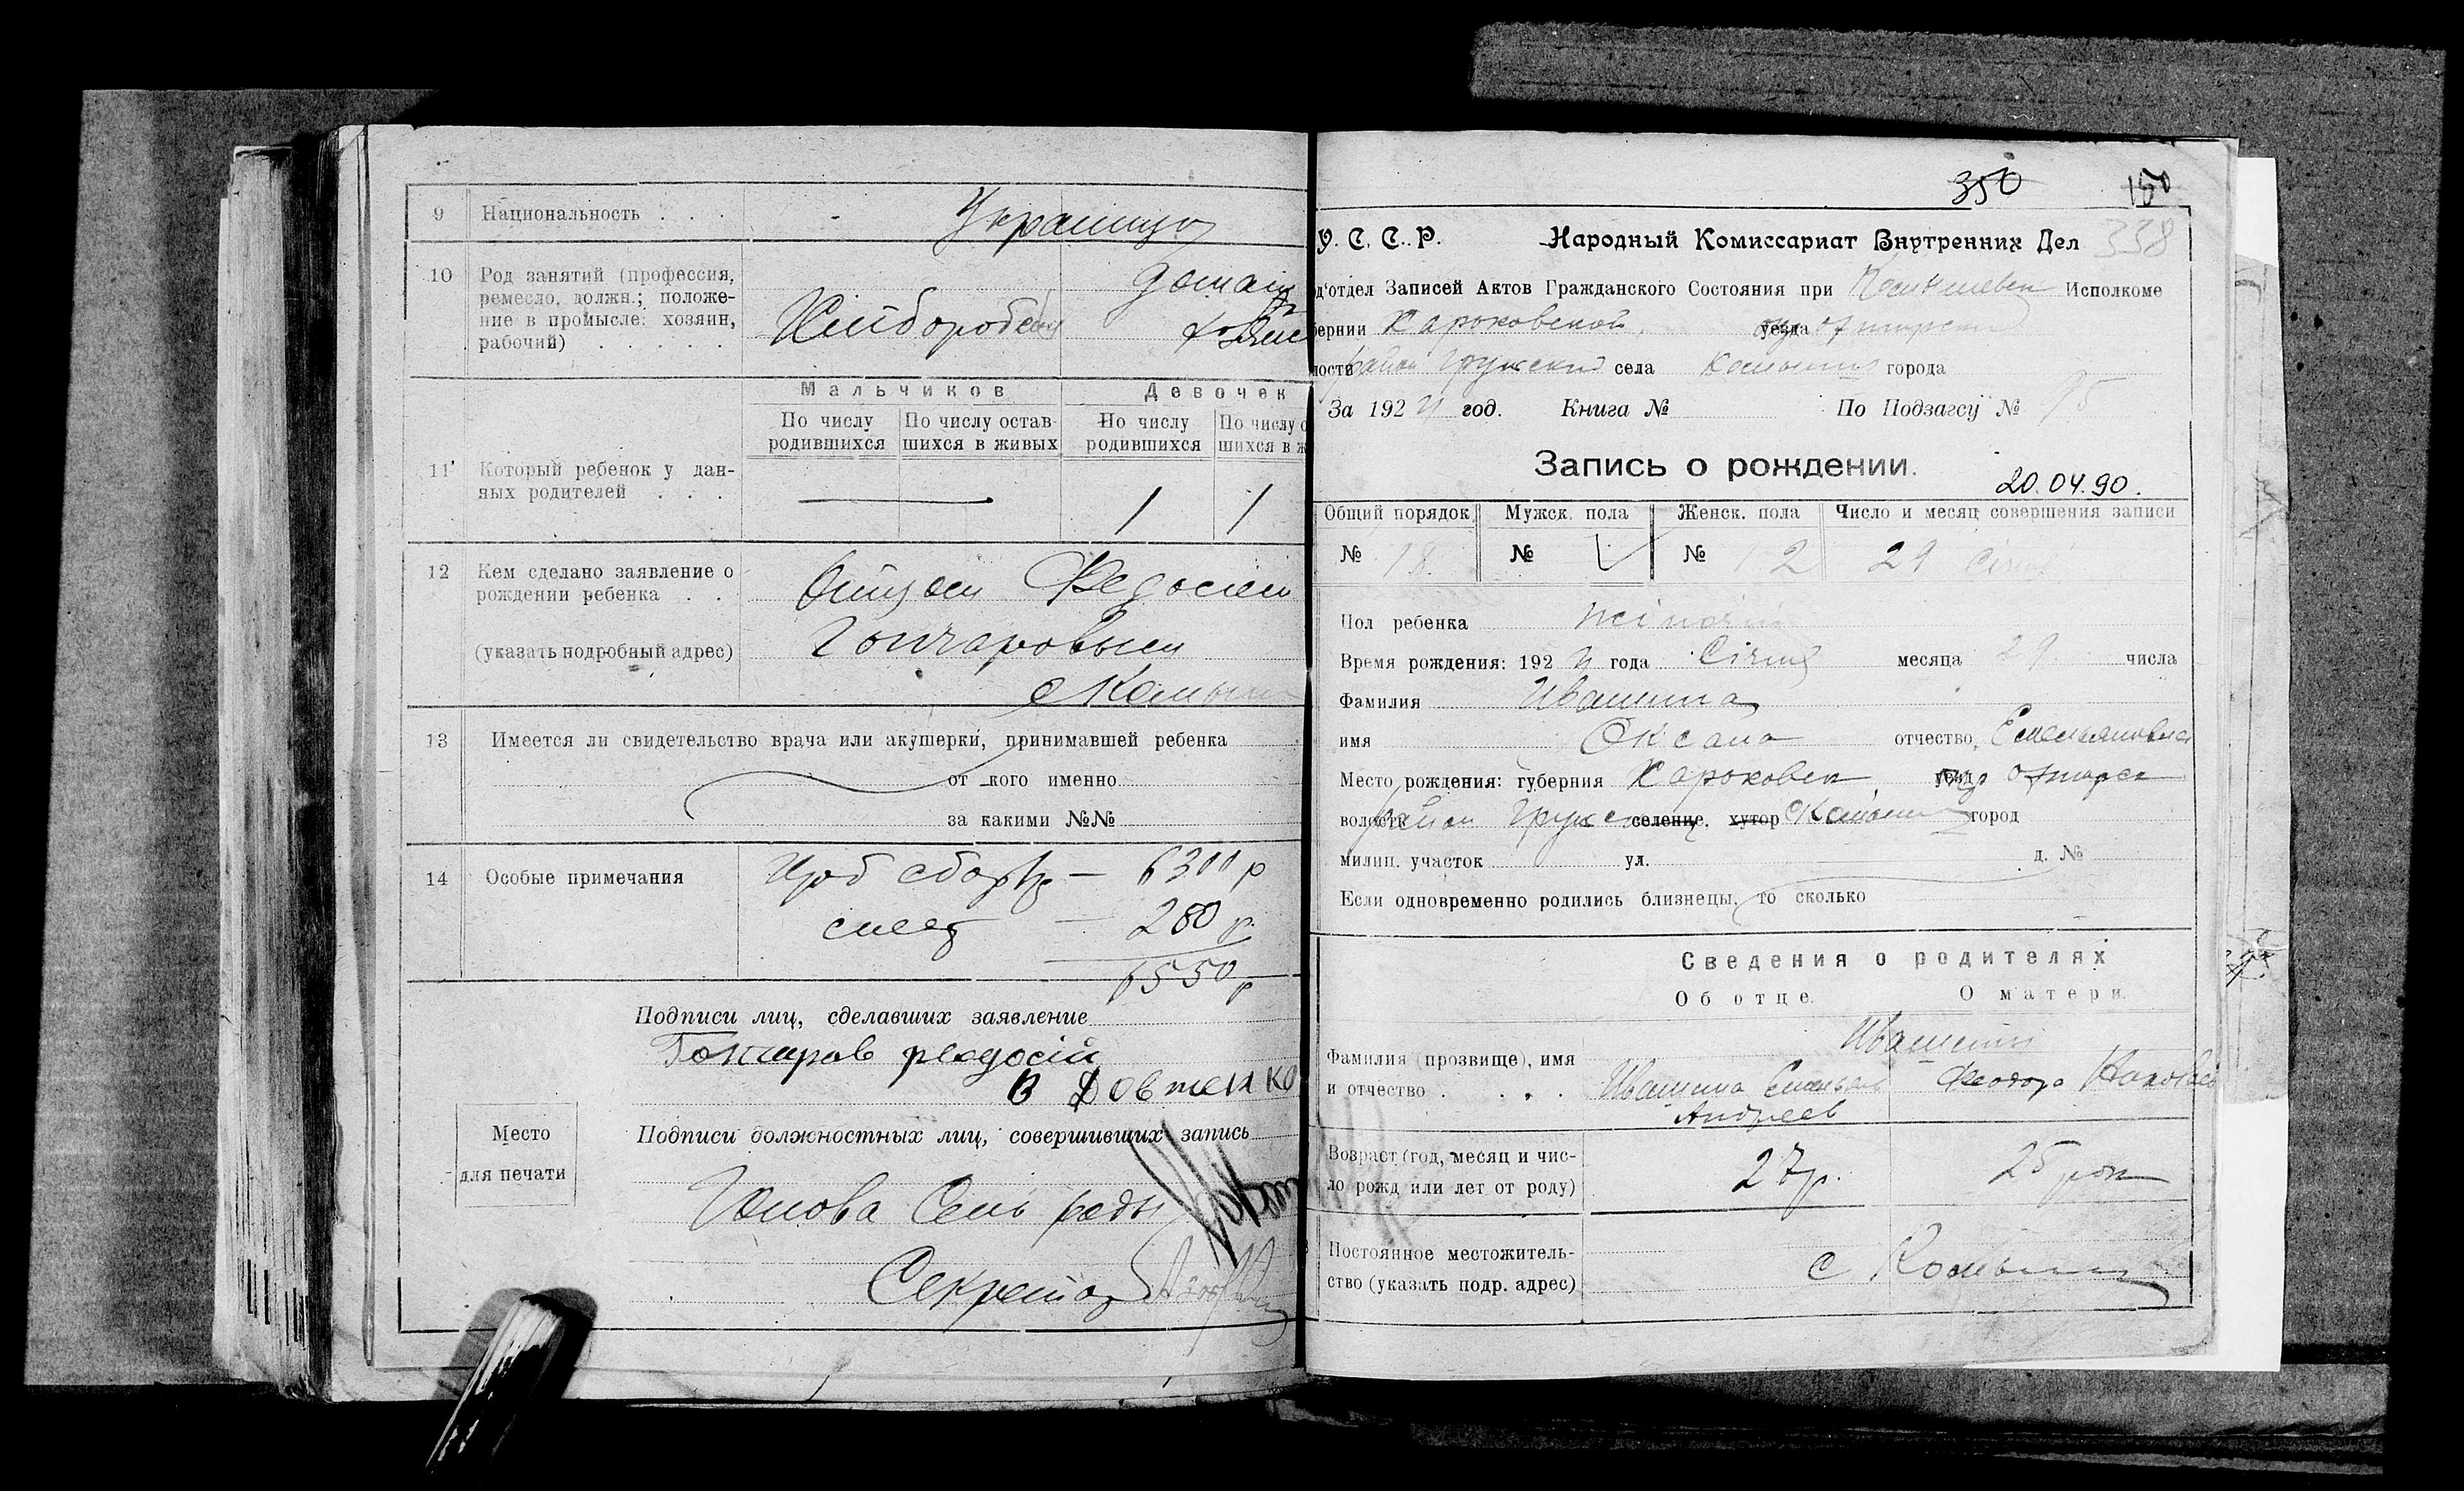 9 Национальность . . . - Украинцы
10 Род занятий (профессия,
ремесло, должн.; положе-
ние в промысле: хозяин,
рабочий) . . . . . Хлебороб
Мальчиков Девочек
По числу родившихся По числу остав-шихся в живых По числу родившихся По числу о шихся в ж
11 Который ребенок у дан-
ных родителей . . . — 1 1
12 Кем сделано заявление о
рождении ребенка . . Отцом Федосием
(указать подробный адрес) Гончаровым
с Камыши
13 Имеется ли свидетельство врача или акушерки, принимавшей ребенка
от кого именно
за какими №№
14 Особые примечания — 6300 р
— 280 р.
6550 р
Подписи лиц, сделавших заявление
Гончаров Федосій
В Довженко
Место
для печати
Подписи должностных лиц, совершивших запись
Голова Сель рады
Секретар
350 150
У. С. С. Р. Народный Комиссариат Внутренних Дел 338
д'отдел Записей Актов Гражданского Состояния при Исполкоме
бернии Харьковской уезда
лости район Грунский села Камыши города
За 192 год. Книга № По Подзагсу № 95
Запись о рождении.
20.04.90.
Общий порядок Мужск. пола Женск. пола Число и месяц совершения записи
№ 18 № № 2 29 Січня
Пол ребенка жіночий
Время рождения: 192 года Січня месяца 29 числа
Фамилия Ивашина
имя Оксана отчество, Емельяновна
Место рождения: губерния Харьковск
волость район Грунск селение, хутор Камыши город
милиц. участок ул. д. №
Если одновременно родились близнецы, то сколько
Сведения о родителях
Об отце. О матери.
Фамилия (прозвище), имя
и отчество . . . . Ивашина Емельян
Андреев
Возраст (год, месяц и чис-
ло рожд или лет от роду) 27 р. 25 рок
Постоянное местожитель-
ство (указать подр. адрес) с Камыши